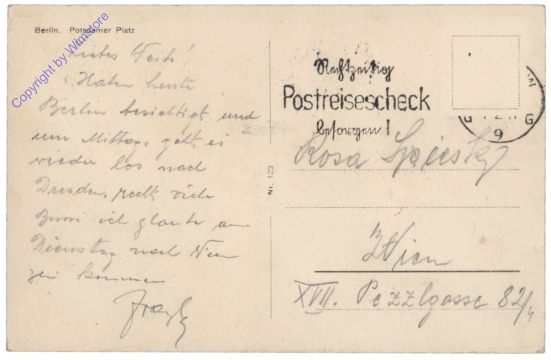 Berlin. Potsdamer Platz
Copyright by Wimstore
Liebes
Haben heute
Berlin besichtigt und
um Mittag geht es
wieder los nach
Dresden. recht viele
ich glaube am
Dienstag nach Wien
zu kommen
Nr. 123
Rechtzeitig
Postreisescheck
besorgen!
9
G
Rosa
Wien
XVII. Pezzlgasse 82/4